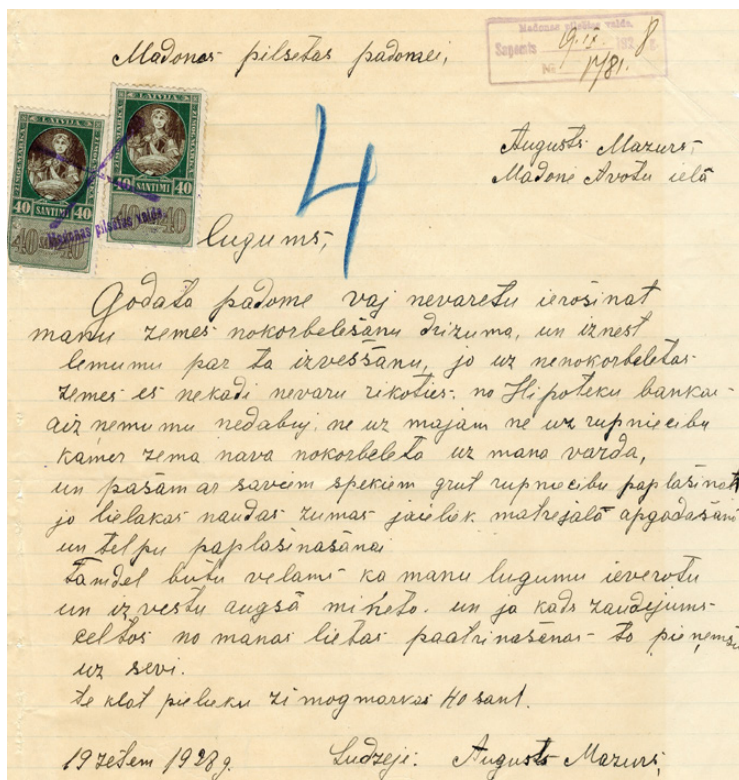 Madonas pilsetas padomei,
Madonas pilsētas valde.
Saņemts 19.IX. 1928 g.
№ 1781.
LATVIJA
ZĪMOGMARKA
40 SANTIMI 40
LATVIJA
ZĪMOGMARKA
40 SANTIMI 40
Madonas pilsētas valde.
4
Augusts Mazurs,
Madonē Avotu ielā
lugums,
Godāta padome vaj nevaretu ierosinat
manu zemes nokorbelešanu drizuma, un iznest
lemumu par ta izveššanu, jo uz nenokorbeletas
zemes es nekadi nevaru rikoties. no Hipoteku bankas
aiznemumu nedabuj. ne uz majam ne uz rupniecibu
kamer zema nava nokorbeleta uz mana varda,
un pašam ar saviem spekiem grut rupniecibu paplašinat
jo lielakas naudas zumas jaieliek matrejalā apgadašanā
un telpu paplašinašanai
tamdel butu velams ka manu lugumu ieverotu
un izvestu augšā mineto. un ja kads zaudejums
celtos no manas lietas paatrinašanas to pieņemšu
uz sevi.
te klat pielieku zimogmarkas 40 sant.
19 zetem 1928 g. Ludzeji: Augusts Mazurs,